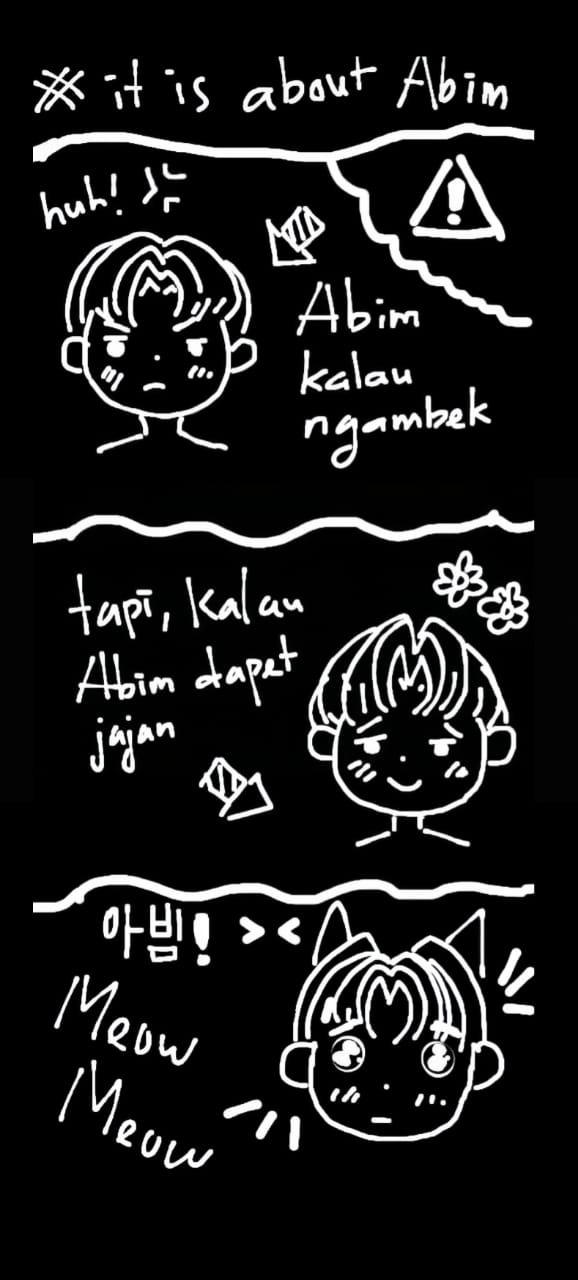 ※ it is about Abim
huh!
!
Abim
kalau
ngambek
tapi, kalau
Abim dapet
jajan
아빔! ><
Meow
Meow